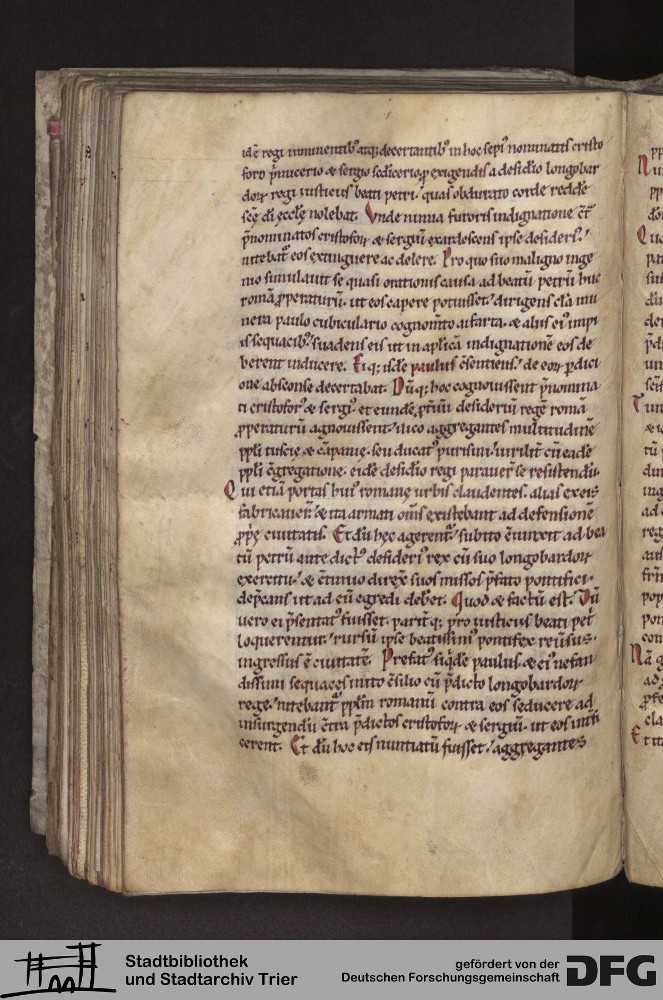 idē regi imminentib; atq; decertantib; in hoc sepi⁹ nominatis cristo
foro p̄micerio & sergio sedicerio, p exigendis a desid̄io longobar
dorꝝ regi iusticiis beati petri. quas obdurato corde redd̄e
scē di eccłe nolebat. Vnde nimia furoris indignatione ꝯt̄
p̄nominatos cristoforꝝ & sergiū exardescens ipse desideri⁹!
nitebat᷑ eos extinguere ac delere. Pro quo suo maligno inge
nio simulauit se quasi orationis causa ad beatū petrū huc
romā ꝓperaturū. ut eos capere potuisset. dirigens clā mu
nera paulo cubiculario cognom̄to afiarta. & aliis ei⁹ impi
is sequacib; suadens eis ut in aplicā indignationē eos de
berent inducere. Eiq; isdē paulus ꝯsentiens. de eorꝝ pdici
one absconse decertabat. Dūq; hoc cognouissent p̄nomina
ti cristofor⁹ & sergi⁹. et eundē desideriū regē romā
ꝓperaturū agnouissent. ilico aggregantes multitudinē
ppłi tuscie & cāpanie. seu ducat⁹ purisini. uirilit̄ cū eadē
ppłi ꝯgregatione. eidē desid̄io regi parauer̄ se resistendū.
Qui etiā portas hui⁹ romane urbis claudentes. alias ex eis
fabricauer̄. & ita armati om̄s existebant ad defensionē
ꝓp̄e ciuitatis. Et dū hec agerent᷑. subito ꝯiunxit ad bea
tū petrū ante dict⁹ desideri⁹ rex cū suo longobardorꝝ
exercitu. & ꝯtinuo direx̄ suos missos p̄fato pontifici.
dep̄cans ut ad eū egredi deber̄et. Quod & factū est. Dū
uero ei p̄sentat⁹ fuisset. parit̄q; pro iusticiis beati pet̄
loquerentur. rursū ipse beatissim⁹ pontifex reūsus.
ingressus ē ciuitatē. Prefat⁹ siq̇de paulus & ei⁹ nefan
dissimi sequaces inito ꝯsilio cū p̄dicto longobardorꝝ
rege. nitebant᷑ ppłm romanū contra eos seducere ad
insurgendū ꝯtra p̄dictos cristoforꝝ & sergiū. ut eos int̄fi
cerent. Et dū hoc eis nuntiatū fuisset. aggregantes
Stadtbibliothek
und Stadtarchiv Trier
gefördert von der
Deutschen Forschungsgemeinschaft
DFG